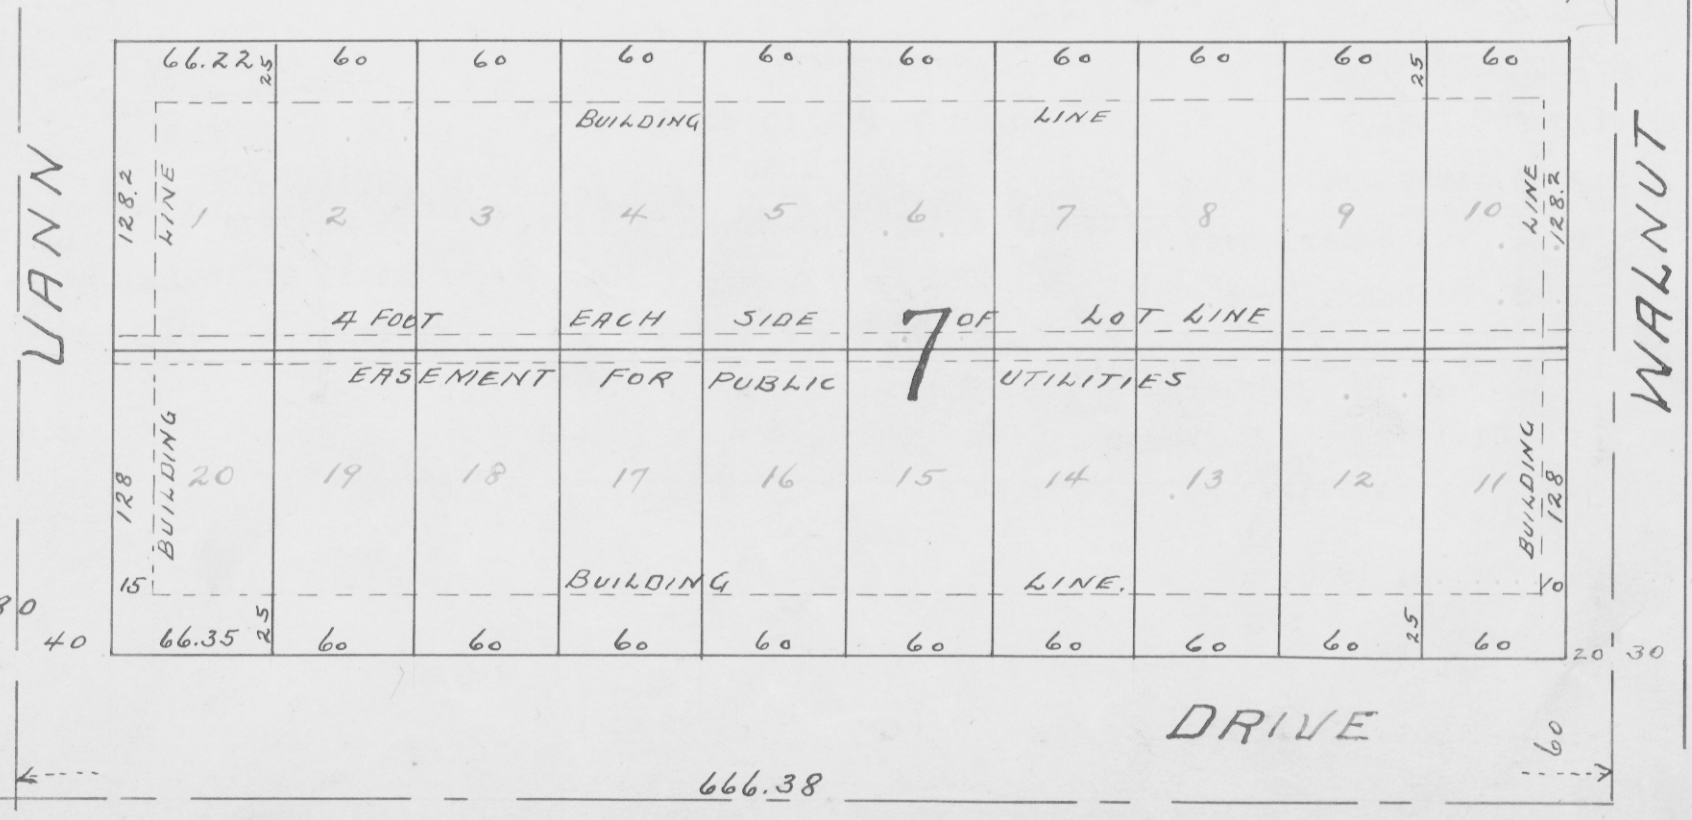 66.22 25 60 60 60 60 60 60 60 60 25 60
BUILDING LINE
VANN
128.2
LINE
1 2 3 4 5 6 7 8 9 10
LINE
128.2
WALNUT
4 FOOT EACH SIDE OF LOT LINE
7
EASEMENT FOR PUBLIC UTILITIES
128
BUILDING
20 19 18 17 16 15 14 13 12 11
BUILDING
128
15 BUILDING LINE. 10
40 66.35 25 60 60 60 60 60 60 60 60 25 60 20 30
DRIVE
60
666.38